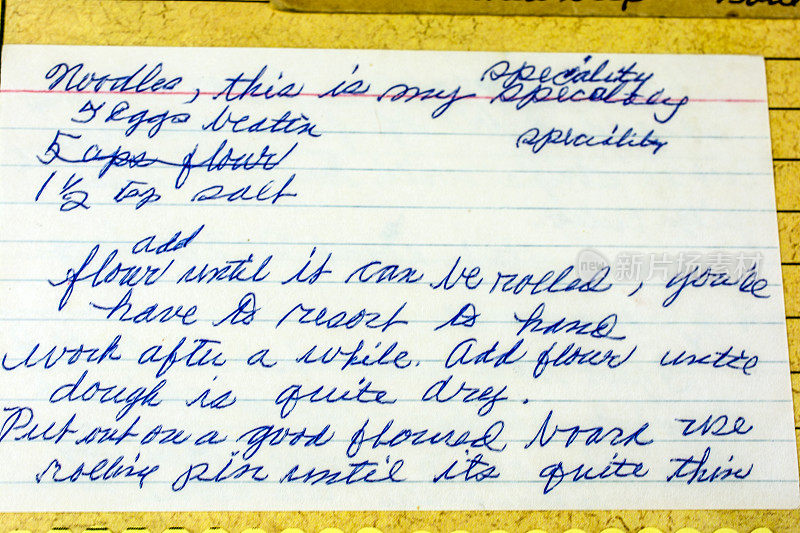 speciality
Noodles, this is my specialty
5 eggs beatin
speciality
5 cups flour
1 1/2 tsp salt
add
flour until it can be rolled, you'le
have to resort to hand
work after a while. Add flour until
dough is quite dry.
Put out on a good floured board use
rolling pin until its quite thin
新片场